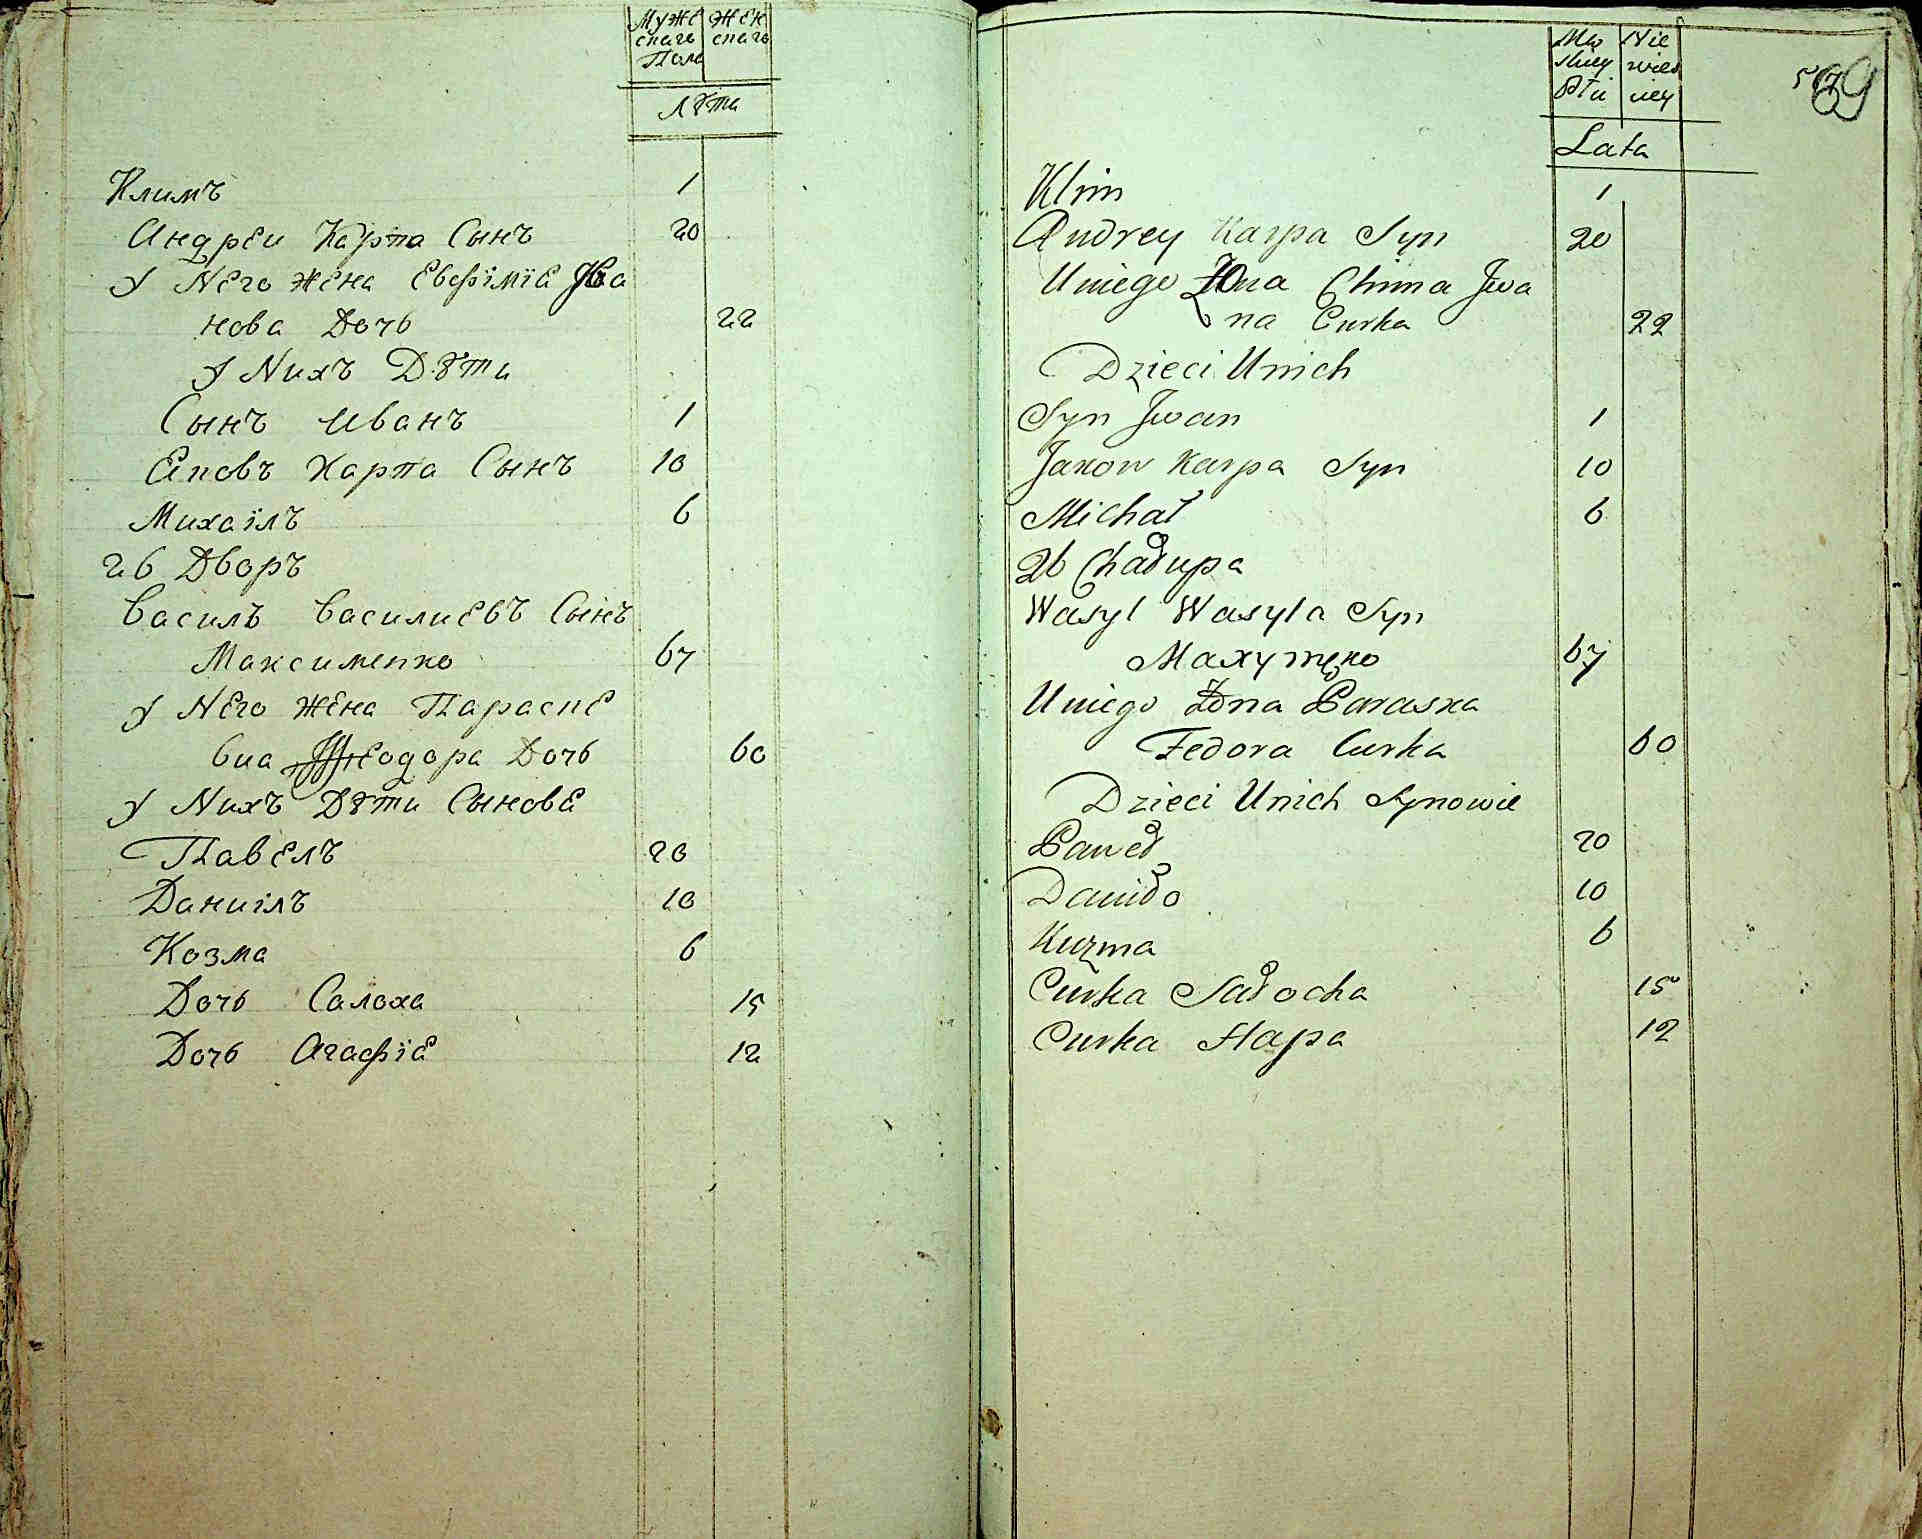 Муже Жен
скагѡ скагѡ
Пола
Лѣта
Климъ 1
Андреи Карпа Сынъ 20
У Него жена Евфіміѧ Ива
нова Дочь 22
У Нихъ Дѣти
Сынъ Иванъ 1
Ѧковъ Карпа Сынъ 10
Михаілъ 6
26 Дворъ
Василь Василиевъ Сынъ
Максименко 67
У Него Жена Параске
виа Феодора Дочь 60
У Нихъ Дѣти Сыновѧ
Павелъ 20
Даниілъ 10
Козма 6
Дочь Салоха 15
Дочь Агафіѧ 12
Mę Nie
skiey wies
Płci ciey
Lata
Klim 1
Andrey Karpa Syn 20
Uniego Żona Chima Jwa
na Curka 22
Dzieci Unich
Syn Jwan 1
Jakow Karpa Syn 10
Michał 6
26 Chałupa
Wasyl Wasyla Syn
Maxymęko 67
Uniego Żona Paraska
Fedora Curka 60
Dzieci Unich Synowie
Paweł 20
Daniło 10
Kuzma 6
Curka Sałocha 15
Curka Hapa 12